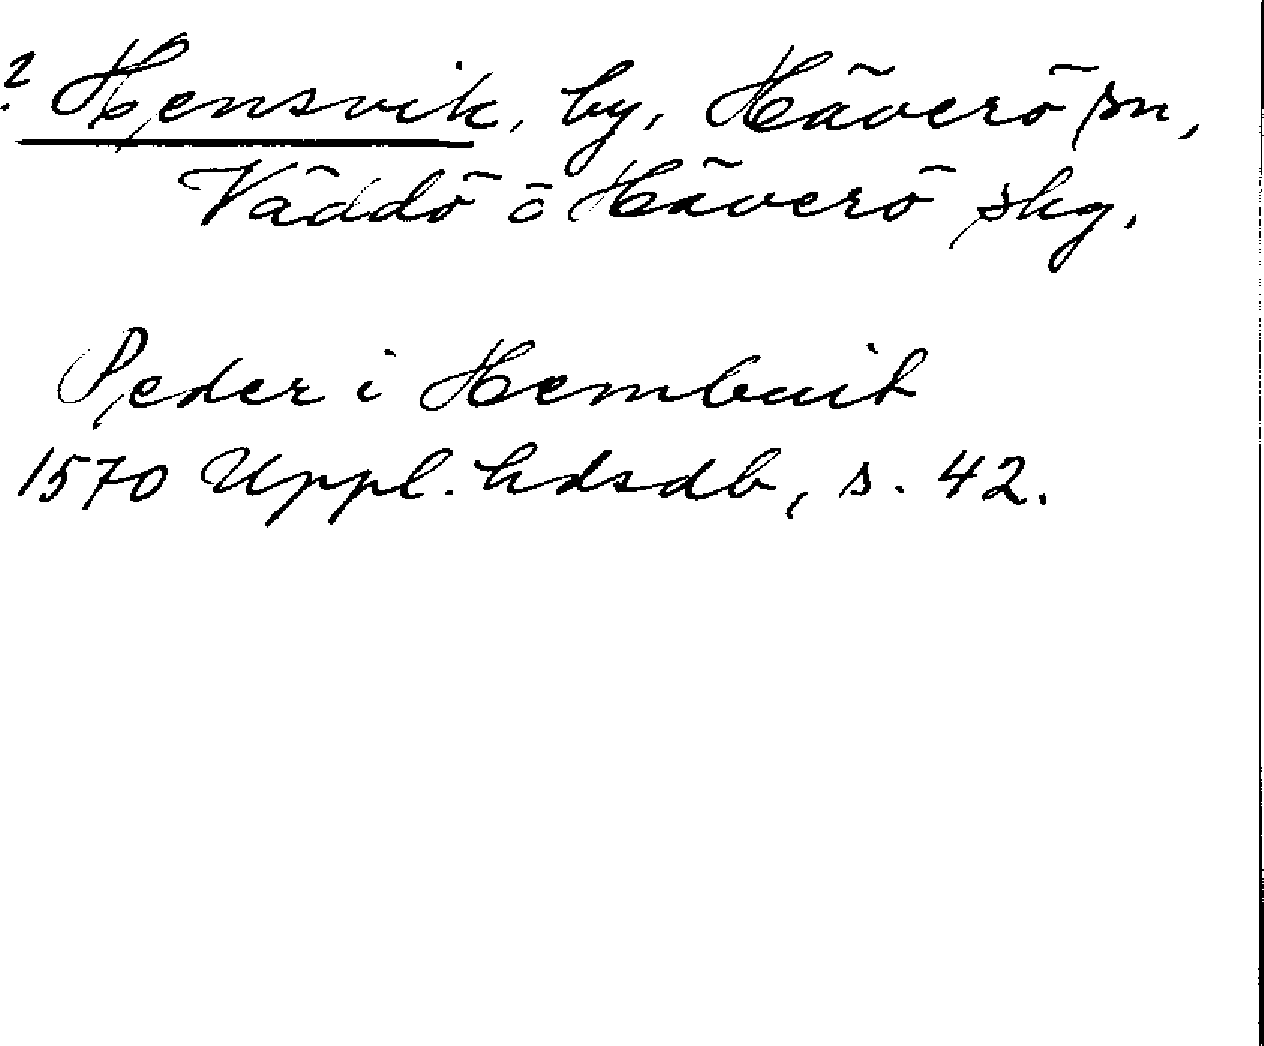 ? Hensvik, by, Häverö sn,
Väddö o Häverö skg.
Peder i Hembuik
1570 Uppl. hdsdb, s. 42.